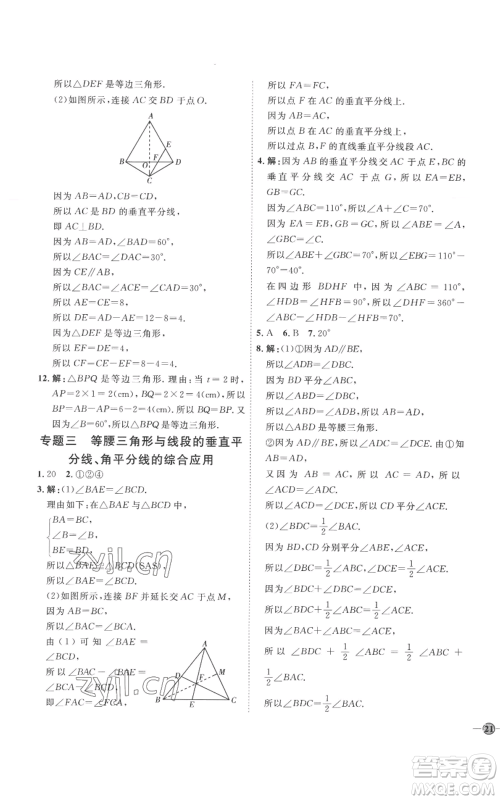 所以△DEF是等边三角形.
(2)如图所示,连接AC交BD于点O.
A
E
B O F D
C
因为AB=AD,
所以△ABD是等边三角形.
因为CB=CD,
所以AC是BD的垂直平分线,
即AC⊥BD.
因为AB=AD,∠BAD=60°,
所以∠BAC=∠DAC=30°.
因为CE∥AB,
所以∠ACE=∠BAC=30°.
所以AE=CE=8,
所以DE=AD-AE=12-8=4.
因为△DEF是等边三角形,
所以EF=DE=4.
所以CF=CE-EF=8-4=4(cm).
12.解:△BPQ是等边三角形.理由:当t=2时,
AP=2×1=2(cm),BQ=2×2=4(cm),
所以BP=AB-AP=6-2=4(cm).
所以BQ=BP.
又因为∠B=60°,
所以△BPQ是等边三角形.
专题三 等腰三角形与线段的垂直平
分线、角平分线的综合应用
1.20 2.①②④
3.解:(1)∠BAE=∠BCD.
理由如下:在△BAE与△BCD中,
BA=BC,
∠B=∠B,
BE=BD,
所以△BAE≌△BCD(SAS).
所以∠BAE=∠BCD.
(2)如图所示,连接BF并延长交AC于点M.
由(1)可知∠BAE=
∠BCD,
因为BA=BC,
所以∠BAC=∠BCA.
所以∠BAC-∠BAE=
∠BCA-∠BCD,
即∠FAC=∠FCA,
A
D M
F
B E C
所以FA=FC,
所以点F在AC的垂直平分线上.
因为BA=BC,
所以点B在AC的垂直平分线上,
所以过点B,F的直线垂直平分线段AC.
4.解:因为AB的垂直平分线交AC于点E,BC
的垂直平分线交AC于点G,所以EA=EB,
GB=GC.
因为∠ABC=110°,
所以∠A+∠C=70°.
因为∠ABE=∠A,∠GBC=∠C,
所以∠ABE+∠GBC=70°,
所以∠EBG=110°-70°=40°.
在四边形BDHF中,因为∠ABC=110°,
∠HDB=∠HFB=90°,所以∠DHF=360°-
∠HDB-∠HFB-∠ABC=70°.
5.A 6.B 7.20°
8.解:(1)①因为AD∥BE,
所以∠ADB=∠DBC.
因为BD平分∠ABC,
所以∠ABD=∠DBC.
所以∠ABD=∠ADB.
所以AB=AD.
所以△ABD是等腰三角形.
②因为AD∥BE,
所以∠ADC=∠DCE.
由①知AB=AD,
又因为AB=AC,
所以AC=AD,
所以∠ACD=∠ADC.
所以∠ACD=∠DCE.
(2)∠BDC=1/2∠BAC.
因为BD,CD分别平分∠ABE,∠ACE,
所以∠DBC=1/2∠ABC,∠DCE=1/2∠ACE.
因为∠BDC+∠DBC=∠DCE,
所以∠BDC+1/2∠ABC=1/2∠ACE.
因为∠BAC+∠ABC=∠ACE,
所以∠BDC+1/2∠ABC=1/2∠ABC+
1/2∠BAC.
所以∠BDC=1/2∠BAC.
21
zyjl.cn
zyjl.cn
答案圈
MXQE.COM